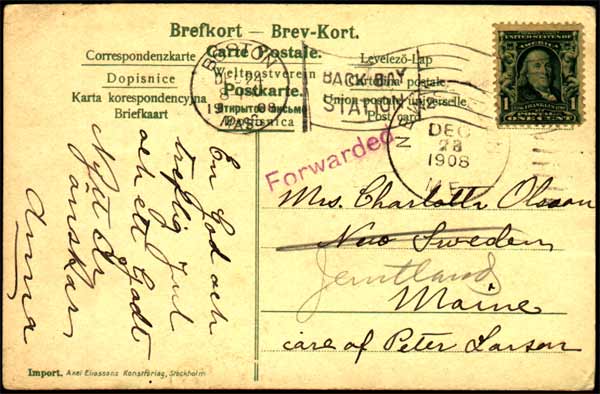 Brefkort — Brev-Kort.
Carte Postale.
Correspondenzkarte
Levelező-Lap
Weltpostverein
Dopisnice
Cartolina postale
Postkarte.
Karta korespondencyjna
Union postale universelle
Briefkaart
Post card
Dopisnica
BOSTON
1908
MASS
BACK BAY
STATION
UNITED STATES OF AMERICA
1
FRANKLIN
POSTAGE
ONE CENT
N
DEC
28
1908
ME.
Forwarded
En God och
treflig Jul
och ett Godt
Nytt År
önskar
Anna
Mrs. Charlotte Olsson
New Sweden
Jemtland
Maine
care of Peter Larson
Import. Axel Eliassons Konstförlag, Stockholm